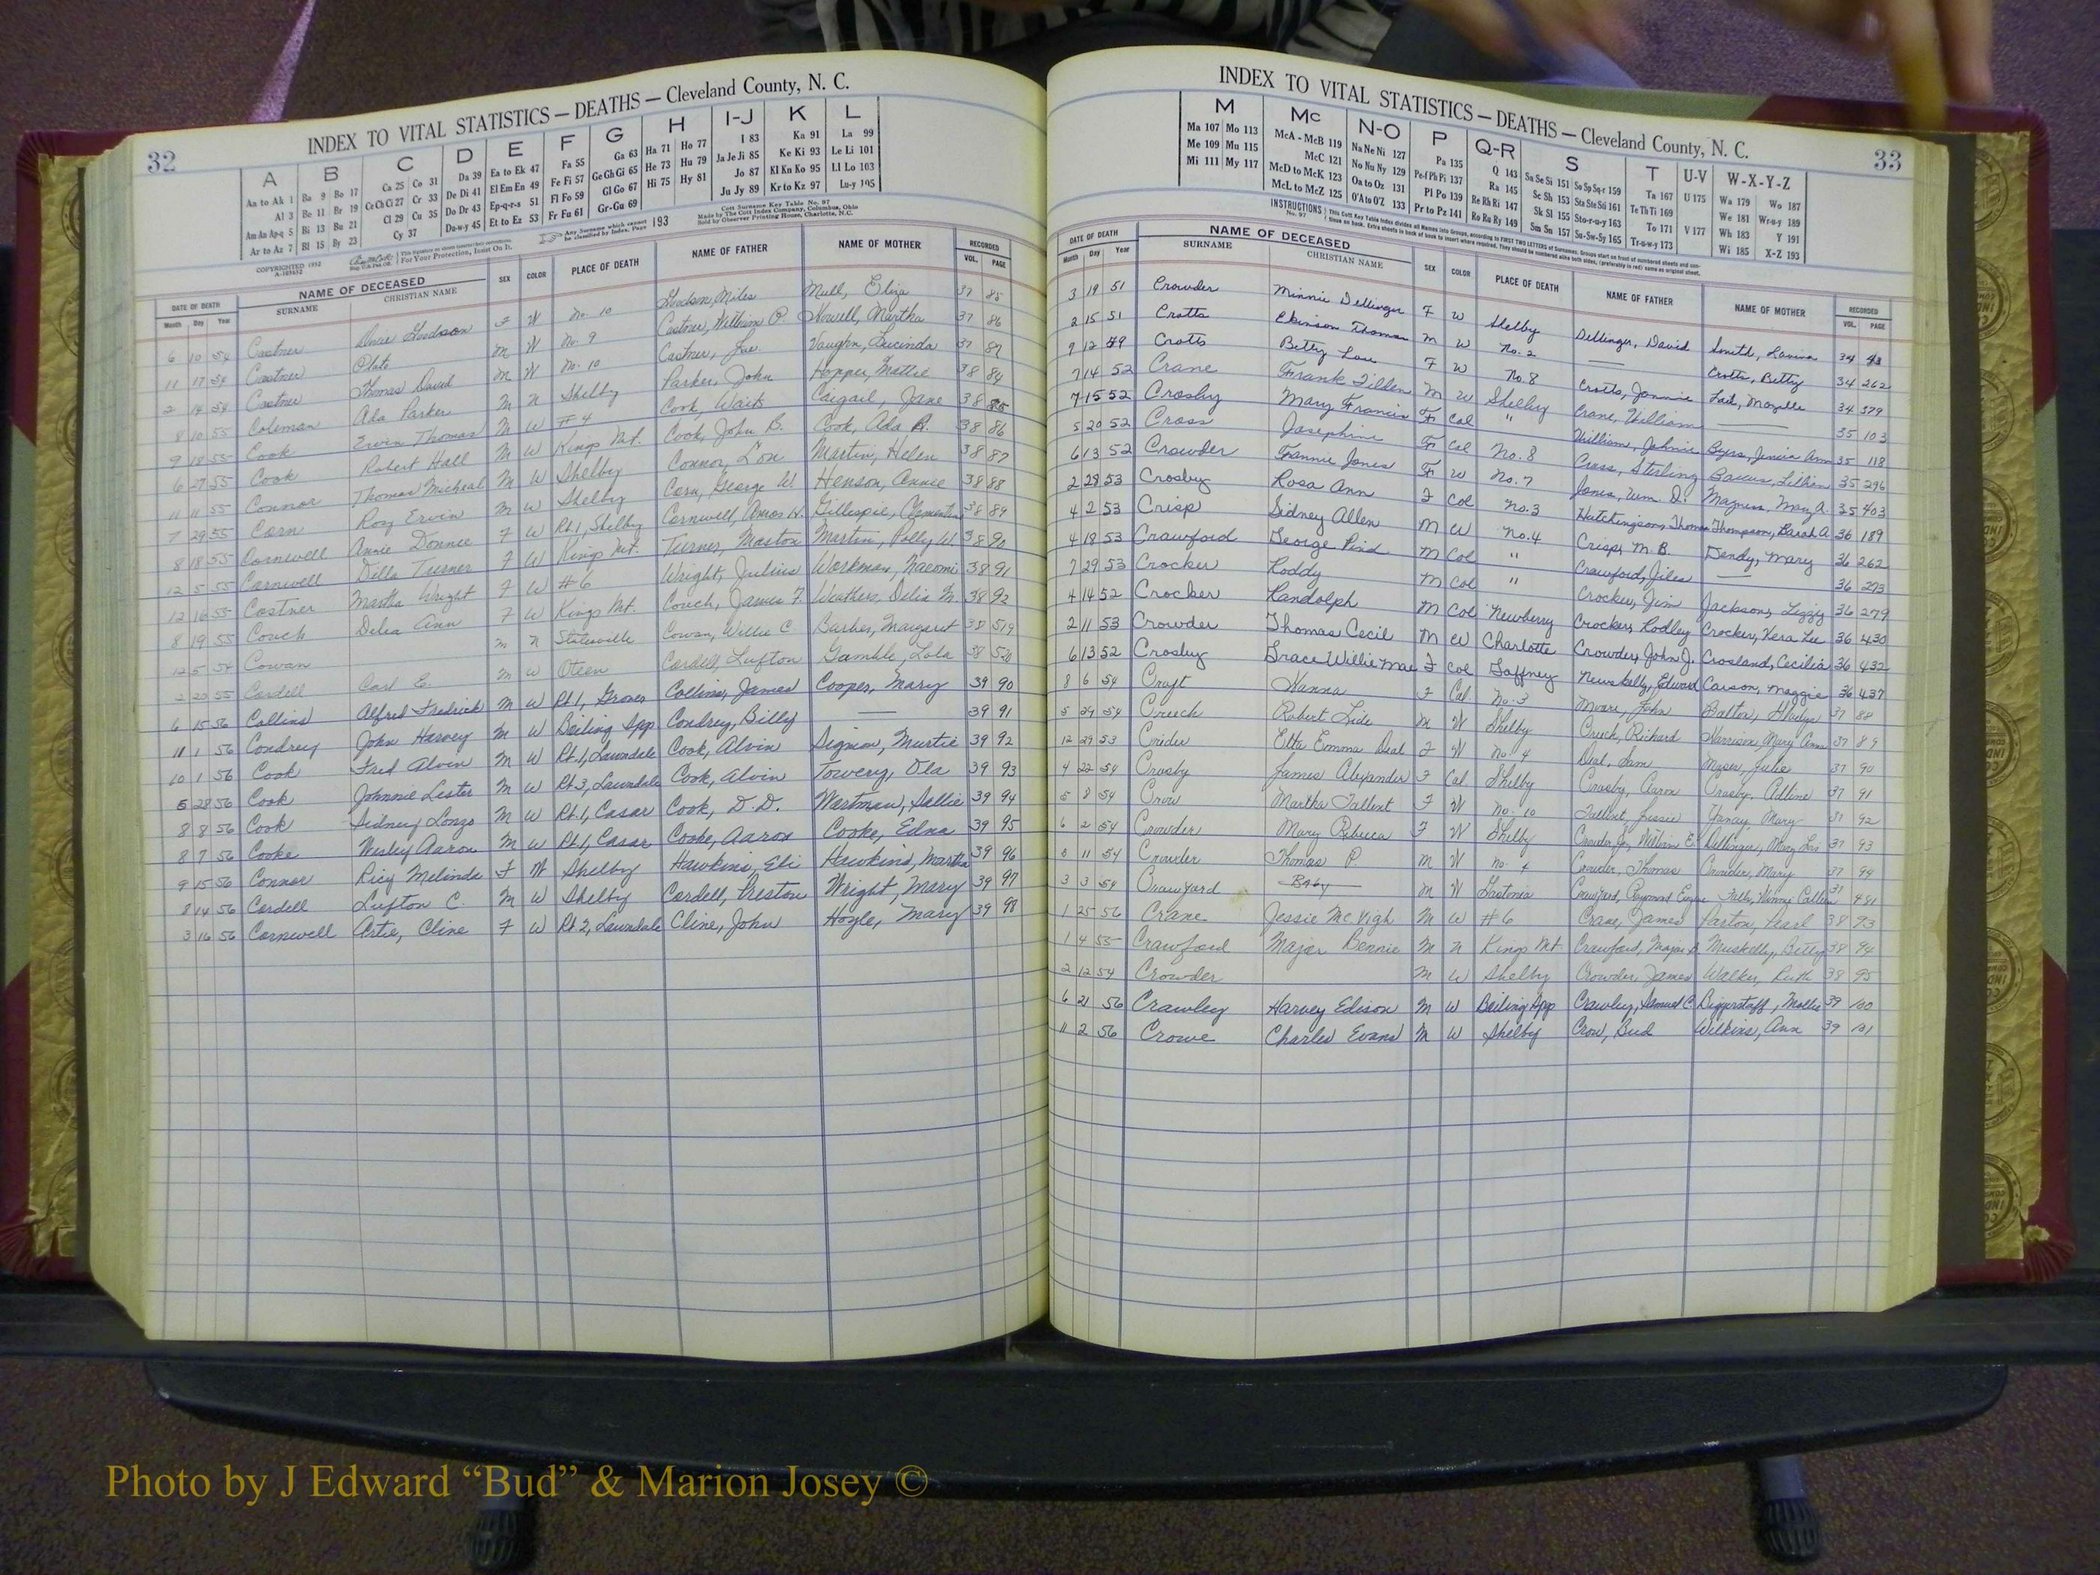 32
INDEX TO VITAL STATISTICS — DEATHS — Cleveland County, N. C.
A B C D E F G H I-J K L
Aa to Ak 1 Ba 9 Bo 17 Ca 25 Co 31 Da 39 Ea to Ek 47 Fa 55 Ga 63 Ha 71 Ho 77 I 83 Ka 91 La 99
Al 3 Be 11 Br 19 Ce Ch Ci 27 Cr 33 De Di 41 El Em En 49 Fe Fi 57 Ge Gh Gi 65 He 73 Hu 79 Ja Je Ji 85 Ke Ki 93 Le Li 101
Am An Ap-q 5 Bi 13 Bu 21 Cl 29 Cu 35 Do Dr 43 Ep-q-r-s 51 Fl Fo 59 Gl Go 67 Hi 75 Hy 81 Jo 87 Kl Kn Ko 95 Ll Lo 103
Ar to Az 7 Bl 15 By 23 Cy 37 Du-w-y 45 Et to Ez 53 Fr Fu 61 Gr-Gu 69 Ju Jy 89 Kr to Kz 97 Lu-y 105
COPYRIGHTED 1952
For Your Protection, Insist On It.
Any Surname which cannot be classified by Index. Page 193
Cott Surname Key Table No. 97
Made by The Cott Index Company, Columbus, Ohio
Sold by Observer Printing House, Charlotte, N.C.
DATE OF DEATH NAME OF DECEASED SEX COLOR PLACE OF DEATH NAME OF FATHER NAME OF MOTHER RECORDED
Month Day Year SURNAME CHRISTIAN NAME VOL. PAGE
6 10 54 Costner Goodson F W No. 10 Goodson, Miles Mull, Eliza 37 85
11 17 54 Costner Plato M W No. 9 Costner, William P. Howell, Martha 37 86
2 14 54 Costner Thomas David M W No. 10 Costner, Vaughn, Lucinda 37 87
8 10 55 Coleman Ada Parker M N Shelby Parker, John Hopper, Mattie 38 84
9 18 55 Cook Ervin Thomas M W # 4 Cook, Waits Jane 38 85
6 27 55 Cook Robert Hall M W Kings Mt. Cook, John B. Cook, Ada B. 38 86
11 11 55 Connor Thomas Micheal M W Shelby Connor, Lon Martin, Helen 38 87
7 29 55 Corn Roy Ervin M W Shelby Corn, George W. Henson, Annie 38 88
8 18 55 Cornwell Annie Donnie F W Rt 1, Shelby Cornwell, Amos H. Gillespie, Clementine 38 89
12 5 55 Cornwell Dilla Turner F W Kings Mt. Turner, Martin, Polly W. 38 90
12 16 55 Costner Martha Wright F W # 6 Wright, Julius Workman, Naeomi 38 91
8 19 55 Couch Delia Ann F W Kings Mt. Couch, James F. Weathers, Delia M. 38 92
12 5 54 Cowan M N Statesville Cowan, Willie C. Barber, Margaret 38 519
2 20 55 Cordell Carl E. M W Oteen Cordell, Lufton Gamble, Lola 38 520
6 15 56 Collins Alfred Fredrick M W Rt 1, Grover Collins, James Cooper, Mary 39 90
11 1 56 Condrey John Harvey M W Boiling Spp Condrey, Billy — 39 91
10 1 56 Cook Fred Alvin M W Rt. 1, Lawndale Cook, Alvin Sigmon, Murtie 39 92
5 28 56 Cook Johnnie Lester M W Rt 3, Lawndale Cook, Alvin Towery, Ola 39 93
8 8 56 Cook Sidney Lonzo M W Rt. 1, Casar Cook, D. D. Wortman, Sallie 39 94
8 7 56 Cooke Wesley Aaron M W Rt 1, Casar Cooke, Aaron Cooke, Edna 39 95
9 15 56 Connor Ricy Melinda F W Shelby Hawkins, Eli Hawkins, Martha 39 96
8 14 56 Cordell Lufton C. M W Shelby Cordell, Preston Wright, Mary 39 97
3 16 56 Cornwell Artie, Cline F W Rt 2, Lawndale Cline, John Hoyle, Mary 39 98
INDEX TO VITAL STATISTICS — DEATHS — Cleveland County, N. C.
33
M Mc N-O P Q-R S T U-V W-X-Y-Z
Ma 107 Mo 113 McA - McB 119 Na Ne Ni 127 Pa 135 Q 143 Sa Se Si 151 So Sp Sq-r 159 Ta 167 U 175 Wa 179 Wo 187
Me 109 Mu 115 McC 121 No Nu Ny 129 Pe-f Ph Pi 137 Ra 145 Sc Sh 153 Sta Ste Sti 161 Te Th Ti 169 We 181 Wr-u-y 189
Mi 111 My 117 McD to McK 123 Oa to Oz 131 Pl Po 139 Re Rh Ri 147 Sk Sl 155 Sto-r-u-y 163 To 171 V 177 Wh 183 Y 191
McL to McZ 125 O'A to O'Z 133 Pr to Pz 141 Ro Ru Ry 149 Sm Sn 157 Su-Sw-Sy 165 Tr-u-w-y 173 Wi 185 X-Z 193
INSTRUCTIONS No. 97 This Cott Key Table Index divides all Names into Groups, according to FIRST TWO LETTERS of Surnames.
DATE OF DEATH NAME OF DECEASED SEX COLOR PLACE OF DEATH NAME OF FATHER NAME OF MOTHER RECORDED
Month Day Year SURNAME CHRISTIAN NAME VOL. PAGE
3 19 51 Crowder Minnie Dellinger F W Shelby Dellinger, David Smith, Lavina 34 43
2 15 51 Crotts Ekinson Thomas M W No. 2 — Crotts, Betty 34 262
9 12 49 Crotts Betty Lou F W No. 8 Crotts, Jonnie Lail, Mozelle 34 379
7 14 52 Crane Frank Tillen M W Shelby Crane, William — 35 103
7 15 52 Crosby Mary Francis F Col " William, Johnie Byrs, Jencie Ann 35 118
5 20 52 Cross Josephine F Col No. 8 Cross, Sterling Lillian 35 296
6 13 52 Crowder Fannie Jones F W No. 7 Jones, Wm. D. Magness, Mary A. 35 403
2 28 53 Crosby Rosa Ann F Col No. 3 Hutchingson, Thomas Thompson, Sarah A. 36 189
4 2 53 Crisp Sidney Allen M W No. 4 Crisp, M. B. Dendy, Mary 36 262
4 18 53 Crawford George Pind M Col " Crawford, Jiles — 36 273
7 29 53 Crocker Roddy M Col " Crocker, Jim Jackson, Lizzy 36 279
4 14 52 Crocker Randolph M Col Newberry Crocker, Rodley Crocker, Vera Lee 36 430
2 11 53 Crowder Thomas Cecil M W Charlotte Crowder, John J. Crosland, Cecilia 36 432
6 13 52 Crosby Grace Willie Mae F Col Gaffney Edward Carson, Maggie 36 437
8 6 54 Craft Hanna F Col No. 3 Moore, John Bolton, Gladys 37 88
5 24 54 Creech Robert Lide M W Shelby Creech, Richard Harrison, Mary Anna 37 89
12 29 53 Crider Etta Emma Deal F W No. 4 Deal, Sam Moser, Julie 37 90
4 22 54 Crosby James Alexander F Col Shelby Crosby, Aaron Crosby, Adline 37 91
5 8 54 Crow Martha Tallent F W No. 10 Tallent, Jessie Yancy, Mary 37 92
6 2 54 Crowder Mary Rebecca F W Shelby Crowder Jr, William E. Dellinger, Mary Lois 37 93
11 54 Crowder Thomas P. M W No. 4 Crowder, Thomas Crowder, Mary 37 94
3 3 54 Crawford — Baby — M W Gastonia Crawford, Raymond Eugene 37 481
1 25 56 Crane Jessie McVeigh M W # 6 Crane, James Parton, Pearl 38 93
1 4 55 Crawford Major Bennie M N Kings Mt. Crawford, Major B. Muskelly, Betty 38 94
2 12 54 Crowder M W Shelby Crowder, James Walker, Ruth 38 95
6 21 56 Crawley Harvey Edison M W Boiling Spp Crawley, Samuel C. Biggerstaff, Mollie 39 100
11 2 56 Crowe Charles Evans M W Shelby Crow, Bud Wilkins, Ann 39 101
Photo by J Edward “Bud” & Marion Josey ©